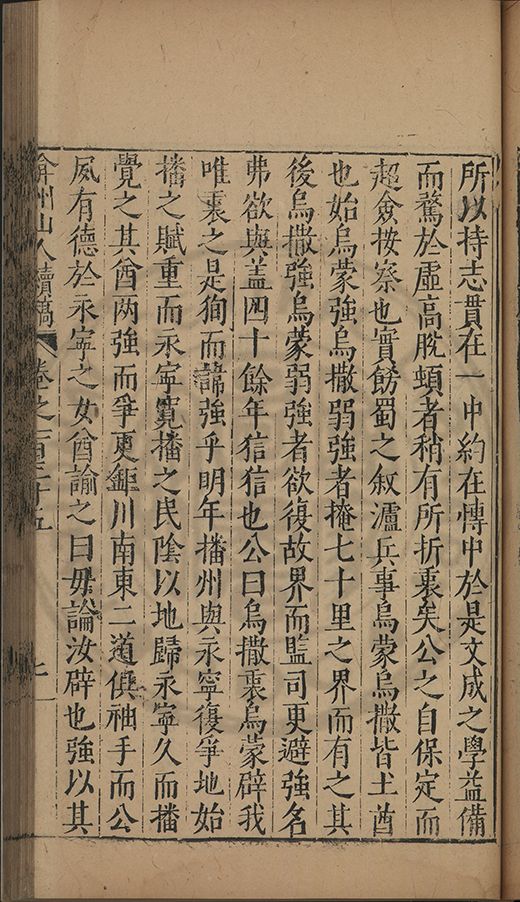 所以持志貫在一中約在愽中於是文成之學益備
而驁於虛高脫頓者稍有所折衷矣公之自保定而
超僉按察也實餝蜀之敘瀘兵事烏蒙烏撒皆土酋
也始烏蒙強烏撒弱強者掩七十里之界而有之其
後烏撒強烏蒙弱強者欲復故界而監司更避強名
弗欲與盖四十餘年狺狺也公曰烏撒裏烏蒙辟我
唯裏之是狥而諱強乎明年播州與永寧復爭地始
播之賦重而永寧寬播之民陰以地歸永寧久而播
覺之其酋两強而爭更鉅川南東二道俱袖手而公
夙有德於永寧之女酋諭之曰毋論汝辟也強以其
弇州山人續稿 卷之一百三十五 七